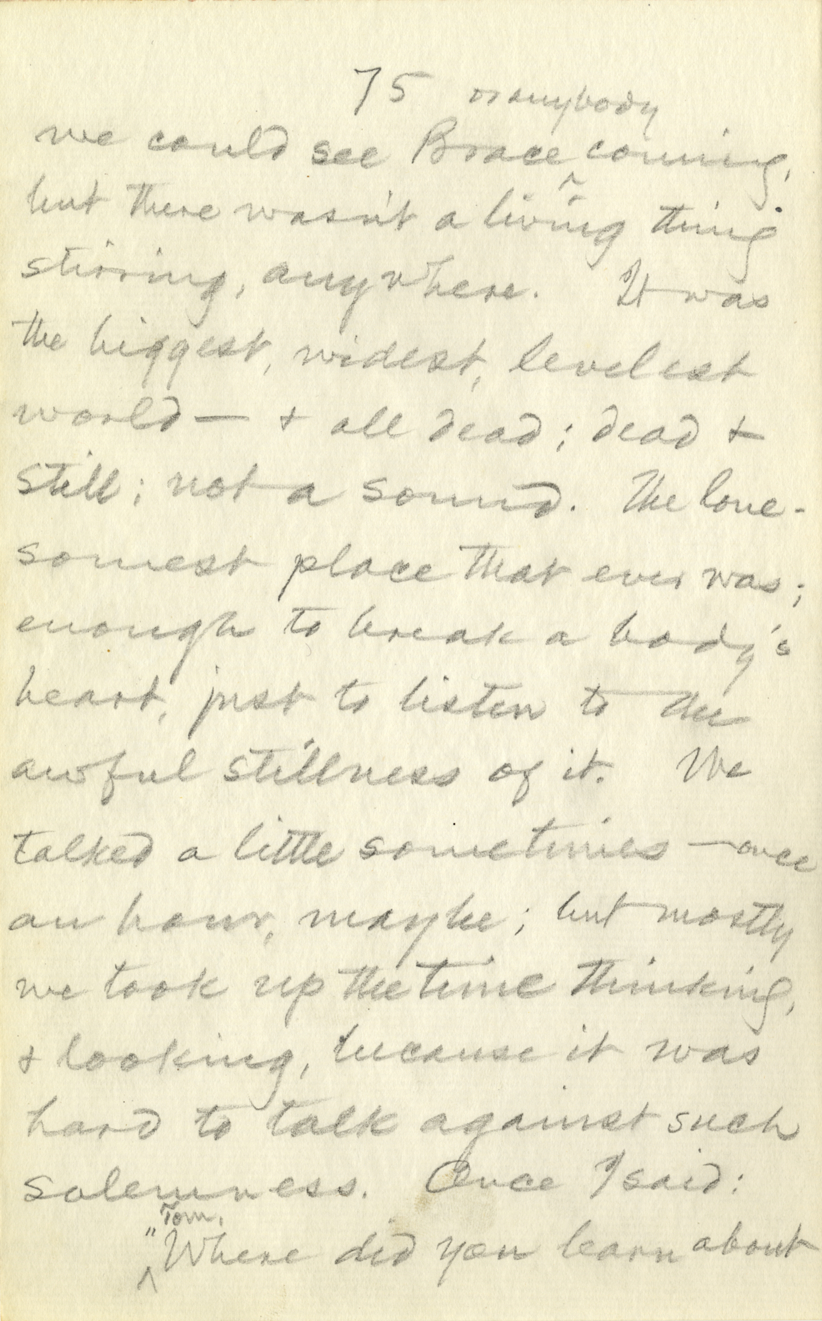 75 or anybody
we could see Brace coming,
but there wasn't a living thing
stirring, anywhere. It was
the biggest, widest, levelest
world — & all dead; dead &
still; not a sound. The lone-
somest place that ever was;
enough to break a body's
heart, just to listen to the
awful stillness of it. We
talked a little sometimes — once
an hour, maybe; but mostly
we took up the time thinking,
& looking, because it was
hard to talk against such
solemness. Once I said:
Tom,
"Where did you learn about